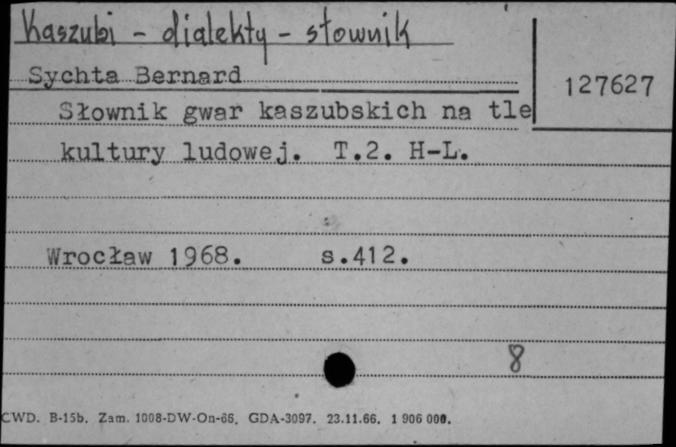 Kaszubi - dialekty - słownik
Sychta Bernard
127627
Słownik gwar kaszubskich na tle
kultury ludowej. T.2. H-L.
Wrocław 1968. s.412.
8
CWD. B-15b. Zam. 1008-DW-On-66. GDA-3097. 23.11.66. 1 906 000.